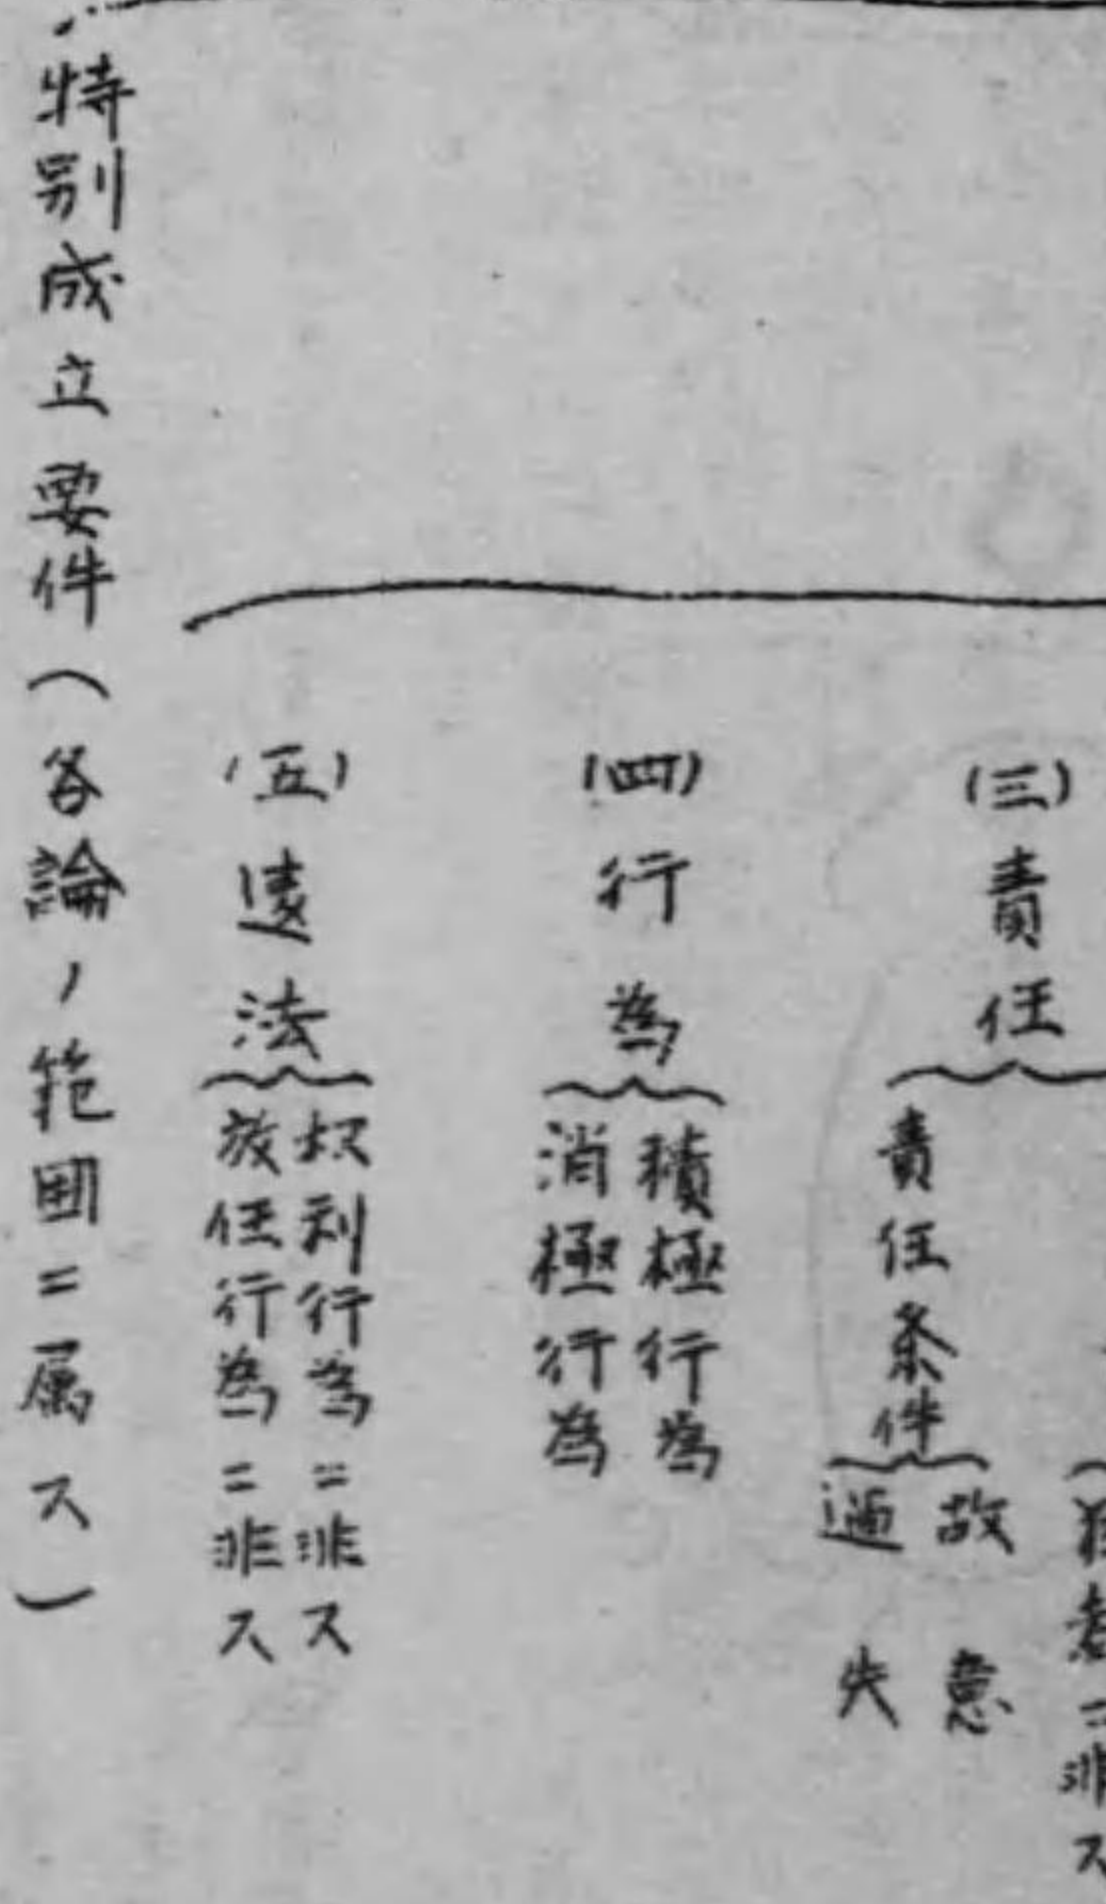 (三)責任
責任条件
故意
過失
(四)行為
積極行為
消極行為
(五)違法
权利行為ニ非ス
放任行為ニ非ス
特別成立要件(各論ノ範囲ニ属ス)